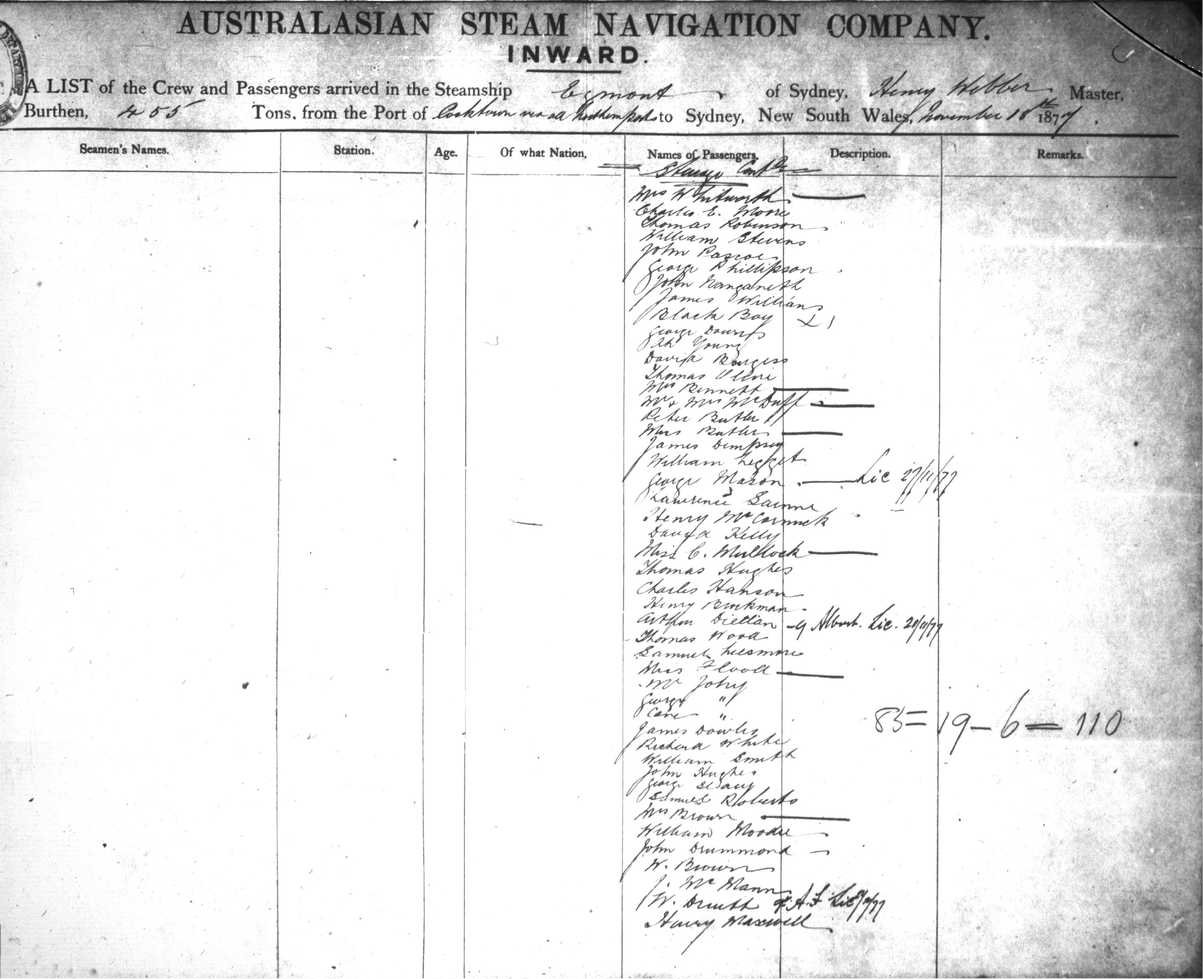 AUSTRALASIAN STEAM NAVIGATION COMPANY.
INWARD.
A LIST of the Crew and Passengers arrived in the Steamship Egmont of Sydney, Henry Webber, Master,
Burthen, 455 Tons, from the Port of Cooktown via all Northern ports to Sydney, New South Wales, November 18th 1877.
Seamen's Names. Station. Age. Of what Nation, Names of Passengers. Description. Remarks.
Steerage Contd
Mrs Whitworth
Charles E. Moore
Thomas Robinson
William Stevens
John Pascoe
George Phillipson
John
James Williams
Black Boy X 1
George
Ah Young
David Burgess
Thomas
Mrs Bennett
Mr & Mrs McDuff
Peter Butler
Mrs Butler
James Dempsey
William Legget
George Mason Lic 27/11/77
Lawrence
Henry McCormick
David Kelly
Miss C. Mullock
Thomas Hughes
Charles Hanson
Henry Brinkman
Lic.
Thomas Wood
Samuel
Miss Flood
Mr
George "
"
James Dowles
Richard White
William Smith
John Hughes
George
Samuel Roberts
85 = 19 - 6 = 110
Mrs Brown
William Moodie
John Drummond
W. Brown
J. McMann
W. Lic
Henry Maxwell